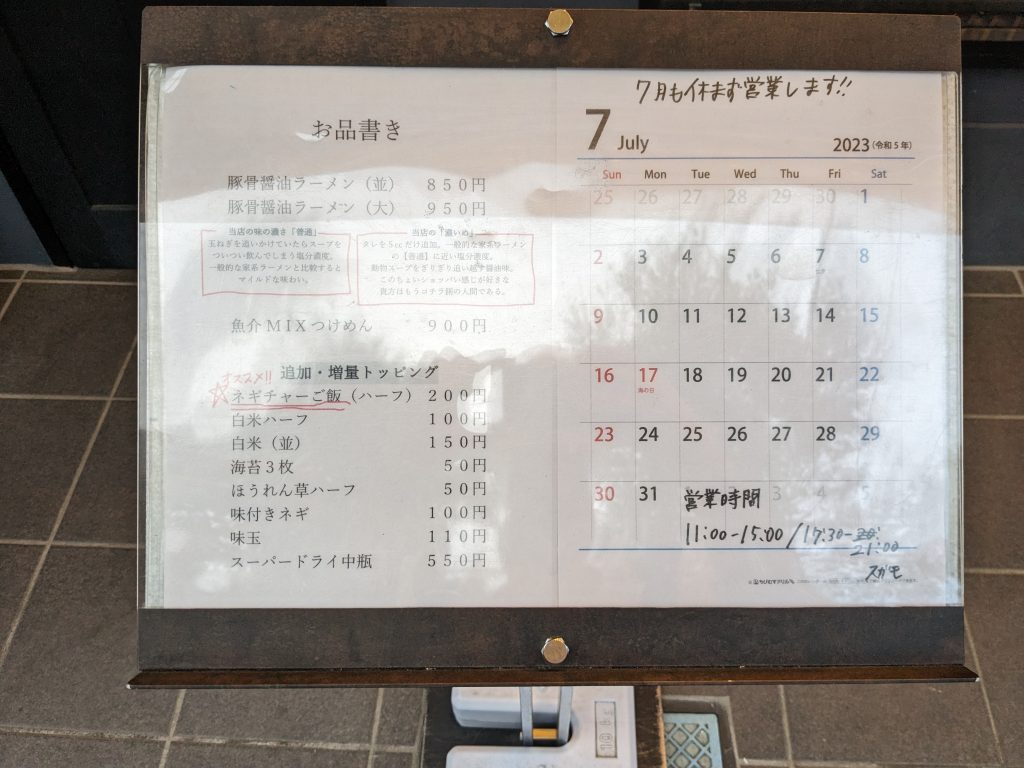 お品書き
豚骨醤油ラーメン（並） 850円
豚骨醤油ラーメン（大） 950円
当店の味の濃さ「普通」
玉ねぎを追いかけていたらスープを
ついつい飲んでしまう塩分濃度。
一般的な家系ラーメンと比較すると
マイルドな味わい。
当店の「濃いめ」
タレを5ccだけ追加。一般的な家系ラーメン
の【普通】に近い塩分濃度。
動物スープをぎりぎり追い越す醤油味。
このちょいショッパい感じが好きな
貴方はもうコチラ側の人間である。
魚介MIXつけめん 900円
追加・増量トッピング
オススメ!!
ネギチャーご飯（ハーフ） 200円
白米ハーフ 100円
白米（並） 150円
海苔3枚 50円
ほうれん草ハーフ 50円
味付きネギ 100円
味玉 110円
スーパードライ中瓶 550円
7月も休まず営業します!!
7 July 2023（令和5年）
Sun Mon Tue Wed Thu Fri Sat
25 26 27 28 29 30 1
2 3 4 5 6 7 8
9 10 11 12 13 14 15
16 17 18 19 20 21 22
海の日
23 24 25 26 27 28 29
30 31 3 4 5
営業時間
11:00-15:00/17:30-
21:00
スガモ